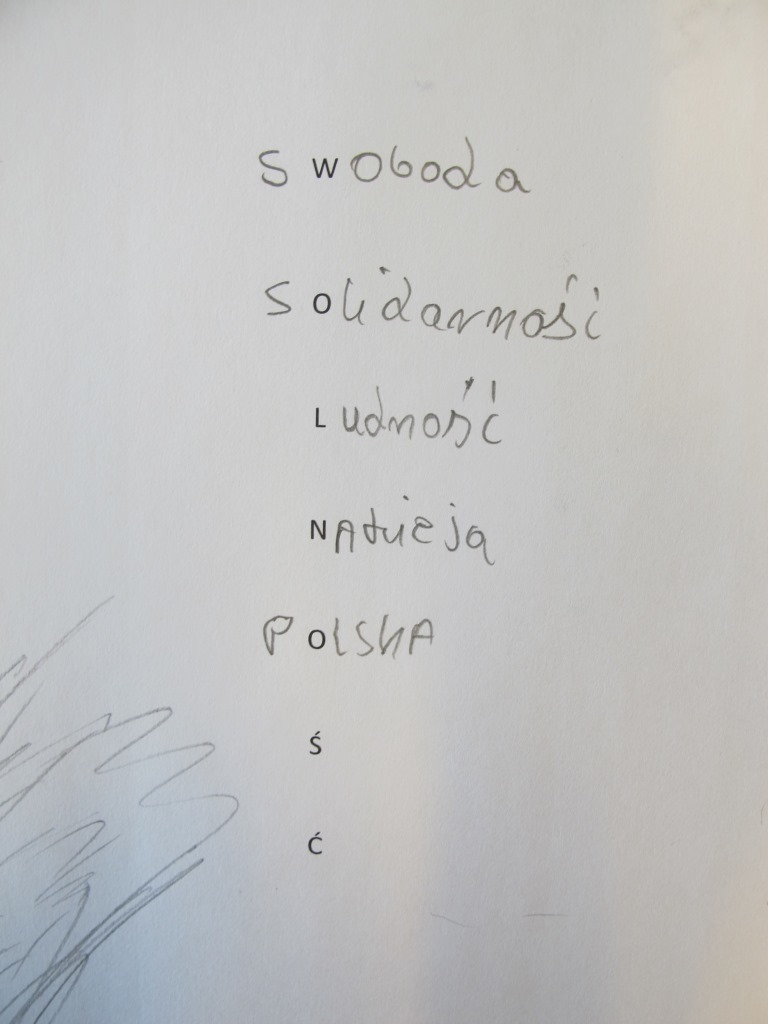 Swoboda
Solidarność
Ludność
NAdzieja
POlskA
Ś
Ć